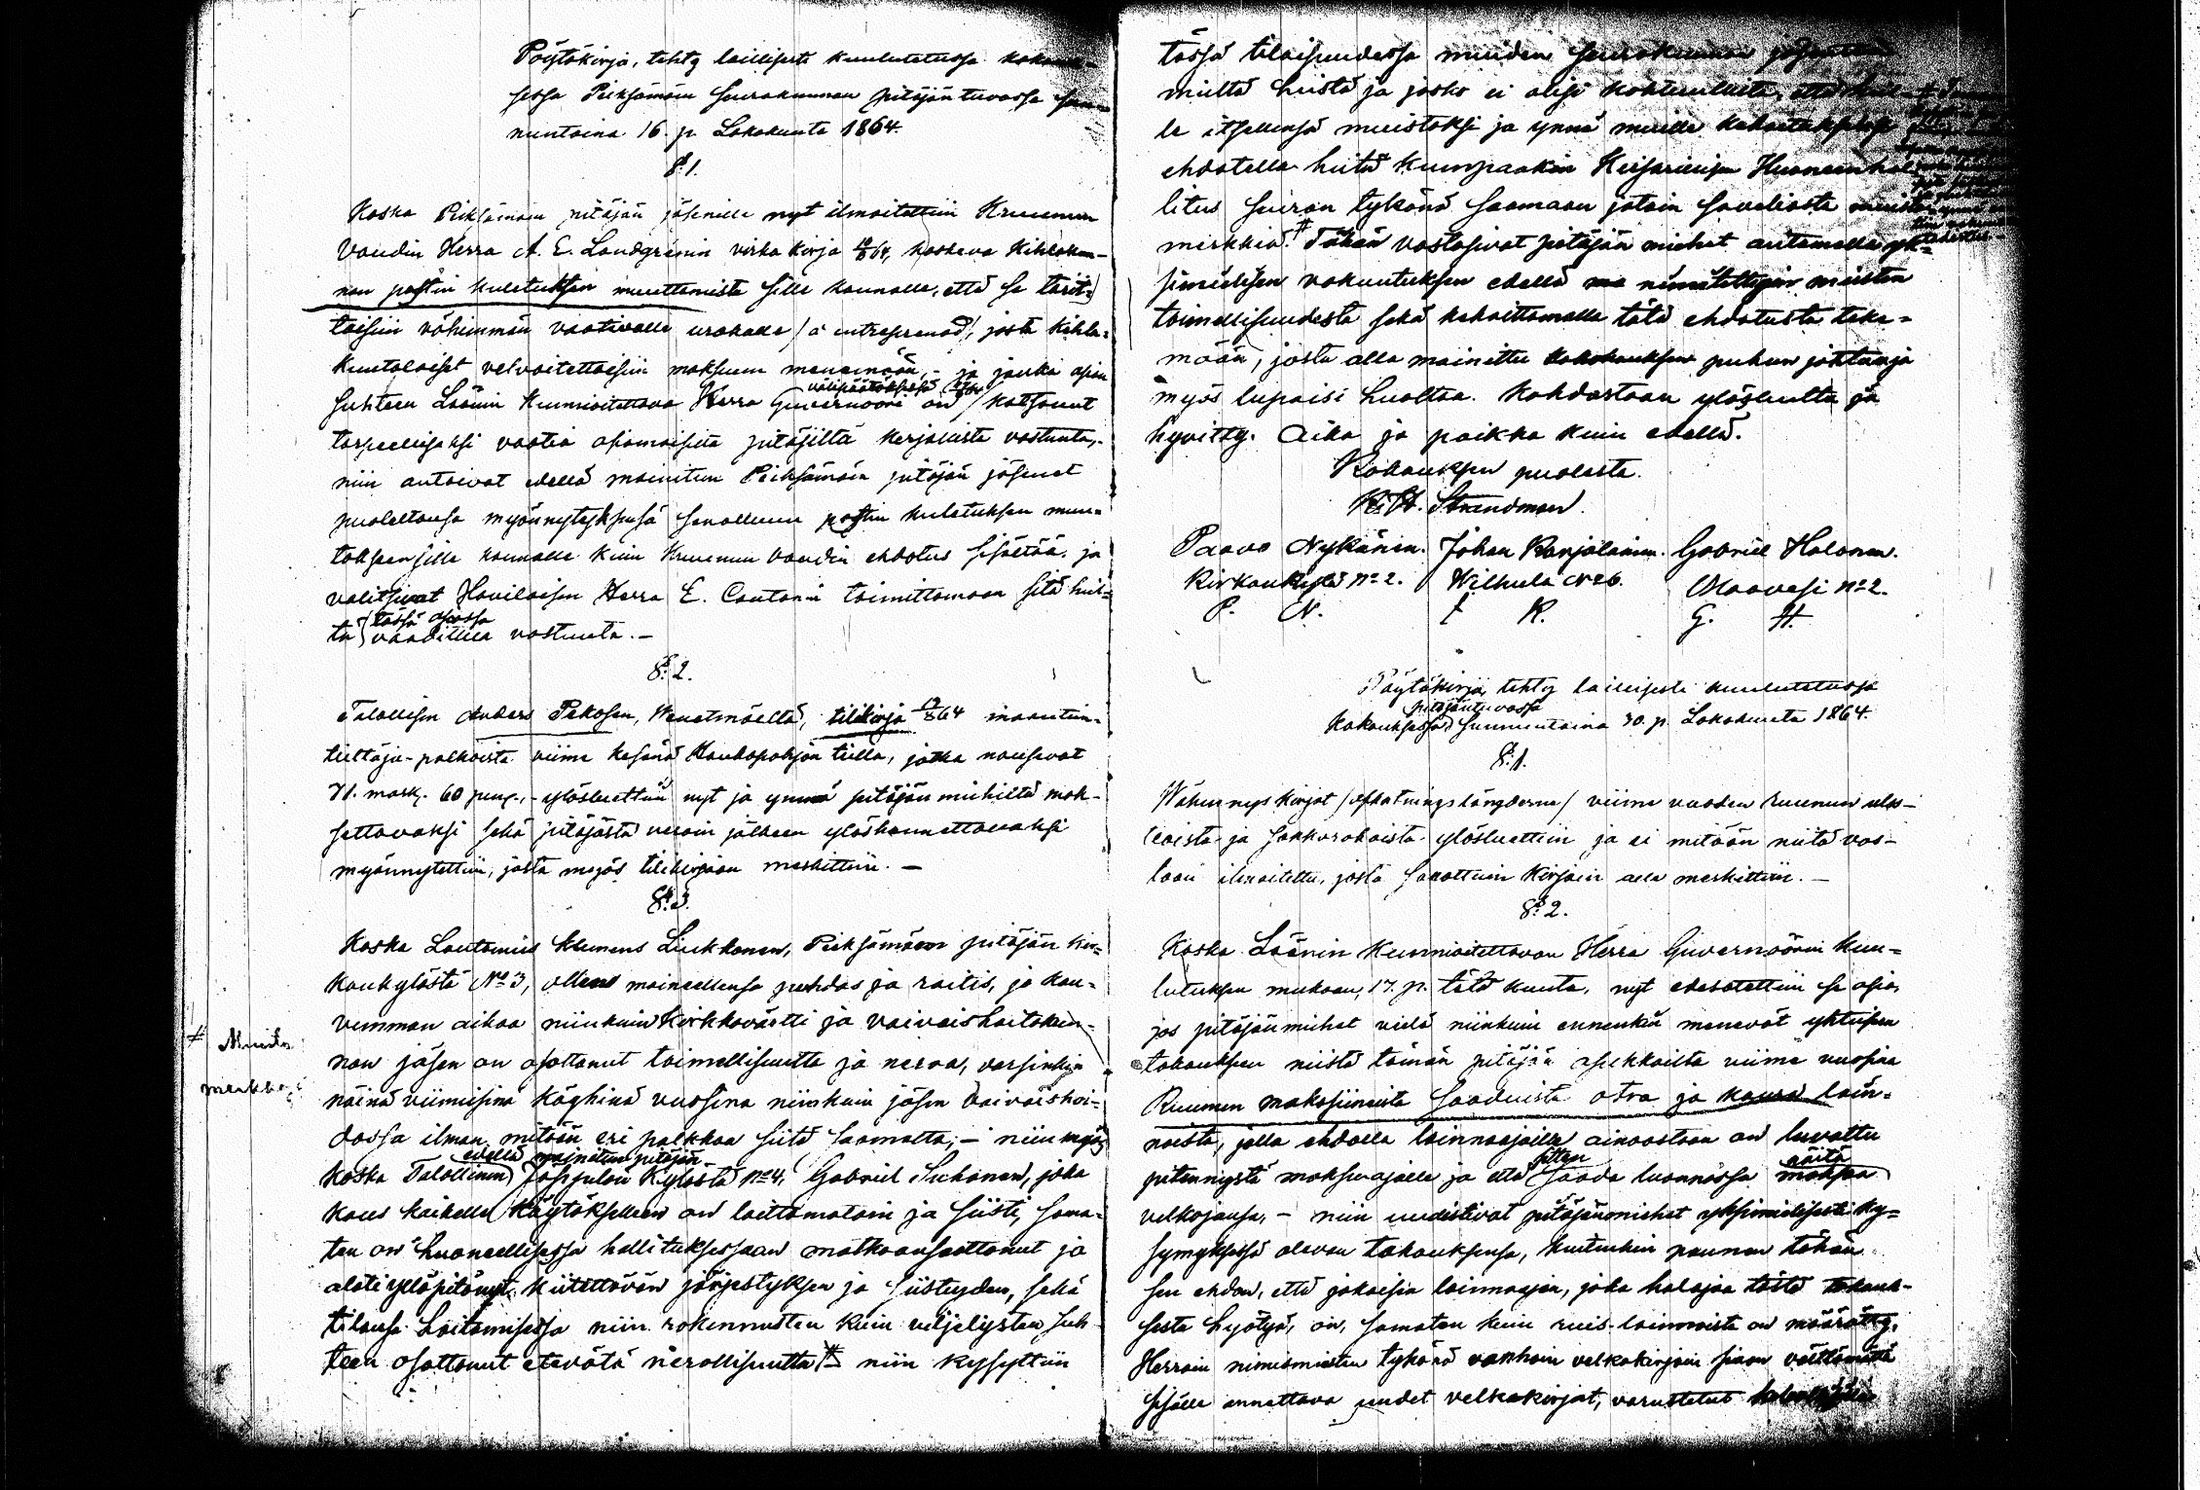 Pöytäkirja, tehty laillisesti kuulutetussa kokouk-
sessa Pieksämäen seurakunnan pitäjäntuvassa sun-
nuntaina 16. p. Lokakuuta 1864.
§ 1.
Koska Pieksämäen pitäjän jäsenille nyt ilmoitettiin Kruunun
Voudin Herra A. E. Landgrenin virka kirja 64, koskeva Kihlakun-
nan postin kuletuksen muuttamista sille kannalle, että se tarit-
taisiin vähimmän vaativalle urakalle / à entreprenad /, josta kihla-
kuntalaiset velvoitettaisiin maksuun menemään, - ja jonka asian
suhteen Läänin Kunnioitettava Herra Guvernööri on välipäätöksessä katsonut
tarpeelliseksi vaatia asianomaisilta pitäjiltä kirjallista vastausta,
niin antoivat edellä mainitun Pieksämäen pitäjän jäsenet
puoleltansa myönnytyksensä sanottuun postin kuletuksen muu-
tokseen sille kannalle kuin Kruunun voudin ehdotus sisältää, ja
valitsivat Haviloisen Herra E. Cantonin toimittamaan sitä heil-
tä tässä asiassa vaadittua vastausta. -
§ 2.
Talollisen Anders Pekosen, Venetmäeltä, tilikirja 64 maantien-
teettäjä-palkoista viime kesänä Haukopohjan tiellä, jotka nousevat
71. mark. 60 penn., - ylösluettiin nyt ja ynnä pitäjän miehiltä mak-
settavaksi sekä pitäjästä veroin jälkeen ylöskannettavaksi
myönnytettiin, josta myös tilikirjaan merkittiin. -
§ 3.
Koska Lautamies Klemens Liukkonen, Pieksämäen pitäjän kir-
konkylästä No 3, ollen maineellensa puhdas ja raitis, ja kau-
vemman aikaa niinkuin Kirkkovärtti ja vaivaishoitokun-
nan jäsen on osottanut toimellisuutta ja neroa, varsinkin
näinä viimeisinä köyhinä vuosina niinkuin jäsen vaivaishoi-
dossa ilman mitään eri palkkaa siitä saamatta; - niin myös
koska Talollinen edellä mainitun pitäjän Kylästä No 4, Gabriel Suhonen, joka
kans kaikelle käytökselleen on laittamatoin ja siisti, sama-
ten on huoneellisessa hallituksessaan matkaansaattanut ja
alati ylöspitänyt kiitettävän järjestyksen ja siisteyden, sekä
tilansa hoitamisessa niin rakennusten kuin viljelysten suh-
teen osottanut etevätä nerollisuutta # niin kysyttiin
# Muisto
merkkiä
tässä tilaisuudessa muiden seurakunnan jäsenten
mieltä heistä ja josko ei olisi kohtuullista, että
le itsellensä muistoksi ja ynnä muille kehoitukseksi
ehdotella heitä kumpaakin Keisarillisen Huoneenhal-
litus seuran tykönä saamaan jotain soveliasta muisto
merkkiä. # Tähän vastasivat pitäjän miehet antamalla yk-
simielisen vakuutuksen edellä nimitettyjen miesten
toimellisuudesta sekä kehoittamalla tätä ehdotusta teke-
mään, josta alla mainittu kokouksen puhun johtaja
myös lupaisi huoltaa. Kohdastaan ylösluettu ja
hyvitty. Aika ja paikka kuin edellä.
Kokouksen puolesta.
K. H. Strandman.
Paavo Nykänen. Johan Karjalainen. Gabriel Halonen.
Kirkonkylä No 2. Wilhula No 6. Maavesi No 2.
P. N. I K. G. H.
Pöytäkirja, tehty laillisesti kuulutetussa
Kokouksessa pitäjäntuvassa sunnuntaina 30. p. Lokakuuta 1864.
§ 1.
Wähennyskirjat / afkortningslängderna / viime vuoden ruunun ulos-
teoista ja sakkorahoista ylösluettiin ja ei mitään niitä vas-
taan ilmoitettu, josta sanottuin kirjain alle merkittiin. -
§ 2.
Koska Läänin Kunnioitettavan Herra Guvernöörin kuu-
lutuksen mukaan, 17. p. tätä kuuta, nyt edesotettiin se asia,
jos pitäjänmiehet vielä niinkuin ennenkin menevät yhteiseen
takaukseen niistä tämän pitäjän asukkailta viime vuosina
Ruunun makasiineista saaduista otra ja kaura lain-
noista, jolla ehdolla lainnaajoille ainoastaan on luvattu
pitennystä maksuajalle ja että sitten saada luonnossa näitä maksaa
velkojansa, - niin uudistivat pitäjänmiehet yksimielisesti ky-
symyksessä olevan takauksensa, kuitenkin pannen tähän
sen ehdon, että jokaisen lainnaajan, joka halajaa tästä takauk-
sesta hyötyä, on, samaten kuin ruis-lainnoista on määrätty,
Herrain nimismiesten tykönä vanhain velkakirjain siaan välttämättä
sisälle annettava uudet velkakirjat, varustetut